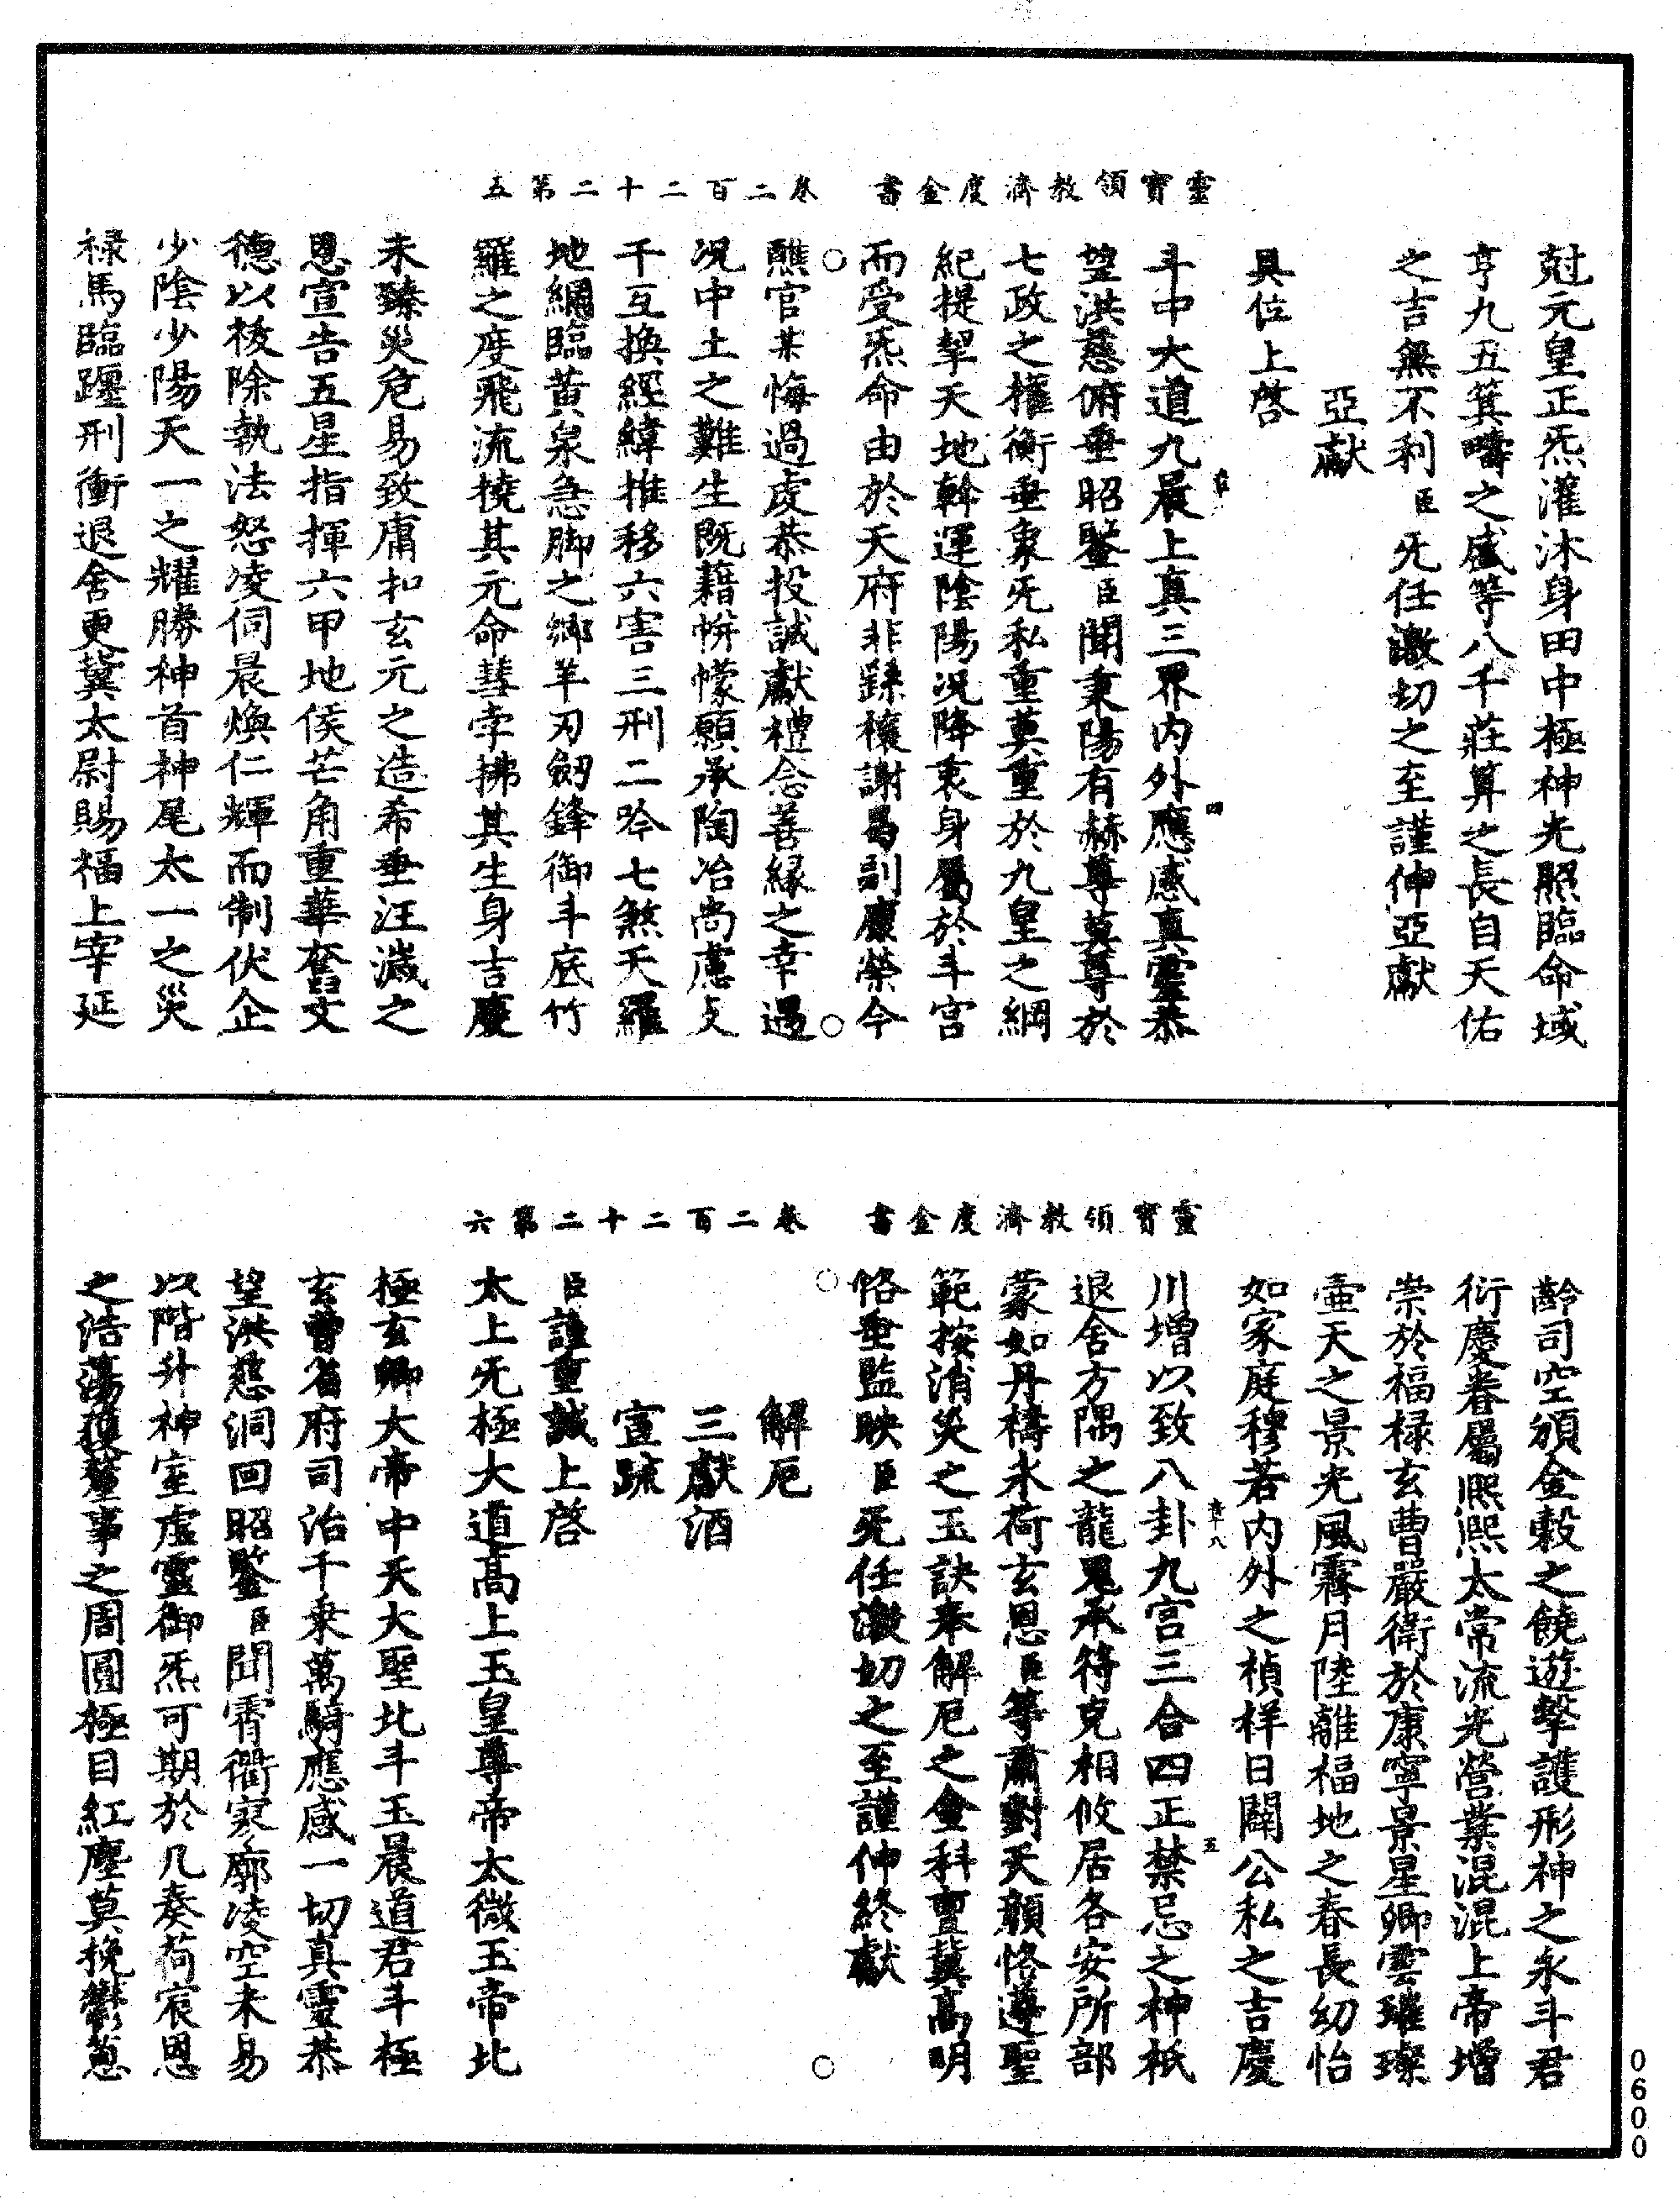 靈寶領教濟度金書　卷二百二十二第五
尅元皇正炁灌沐身田中極神光照臨命域
亨九五箕疇之盛等八千莊算之長自天佑
之吉無不利臣旡任激切之至謹伸亞獻
亞獻
具位上啓
斗中大道九晨上真三界内外應感真靈恭
望洪慈俯垂昭鑒臣聞秉陽有赫尊莫尊於
七政之權衡垂象旡私重莫重於九皇之綱
紀提挈天地斡運陰陽況降衷身屬於斗宮
而受炁命由於天府非䟽禳謝曷副康榮今
醮官某悔過處恭投誠獻禮念善緣之幸遇
况中土之難生既藉帡幪願承陶冶尚慮支
干互換經緯推移六害三刑二吟七煞天羅
地網臨黃泉急脚之鄉羊刃劒鋒御斗底竹
羅之度飛流撓其元命彗孛拂其生身吉慶
未臻災危易致庸扣玄元之造希垂汪濊之
恩宣告五星指揮六甲地侯芒角重華奮文
德以梭除執法怒凌伺晨煥仁輝而制伏企
少陰少陽天一之耀勝神首神尾太一之災
祿馬臨躔刑衝退舍更冀太尉賜福上宰延
靈寶領教濟度金書　卷二百二十二第六
齡司空頒金穀之饒遊擊護形神之永斗君
衍慶眷屬熙熙太常流光營業混混上帝增
崇於福祿玄曹嚴衛於康寧景星卿雲璀璨
壺天之景光風霽月陸離福地之春長幼怡
如家庭穆若内外之禎祥日闢公私之吉慶
川增以致八卦九宮三合四正禁忌之神祇
退舍方隅之龍鬼承符克相攸居各安所部
蒙如丹禱永荷玄恩臣等肅對天顏恪遵聖
範按消災之玉訣奉解厄之金科亶冀高明
恪垂監映臣旡任激切之至謹伸終獻
解厄
三獻酒
宣䟽
臣謹重誠上啓
太上旡極大道高上玉皇尊帝太微玉帝北
極玄卿大帝中天大聖北斗玉晨道君斗極
玄曹省府司治千乘萬騎應感一切真靈恭
望洪慈洞回昭鑒臣聞霄衢寥廓凌空未易
以階升神室虛靈御炁可期於几奏荷宸恩
之浩蕩獲釐事之周圓極目紅塵莫挽鬱葱
0600